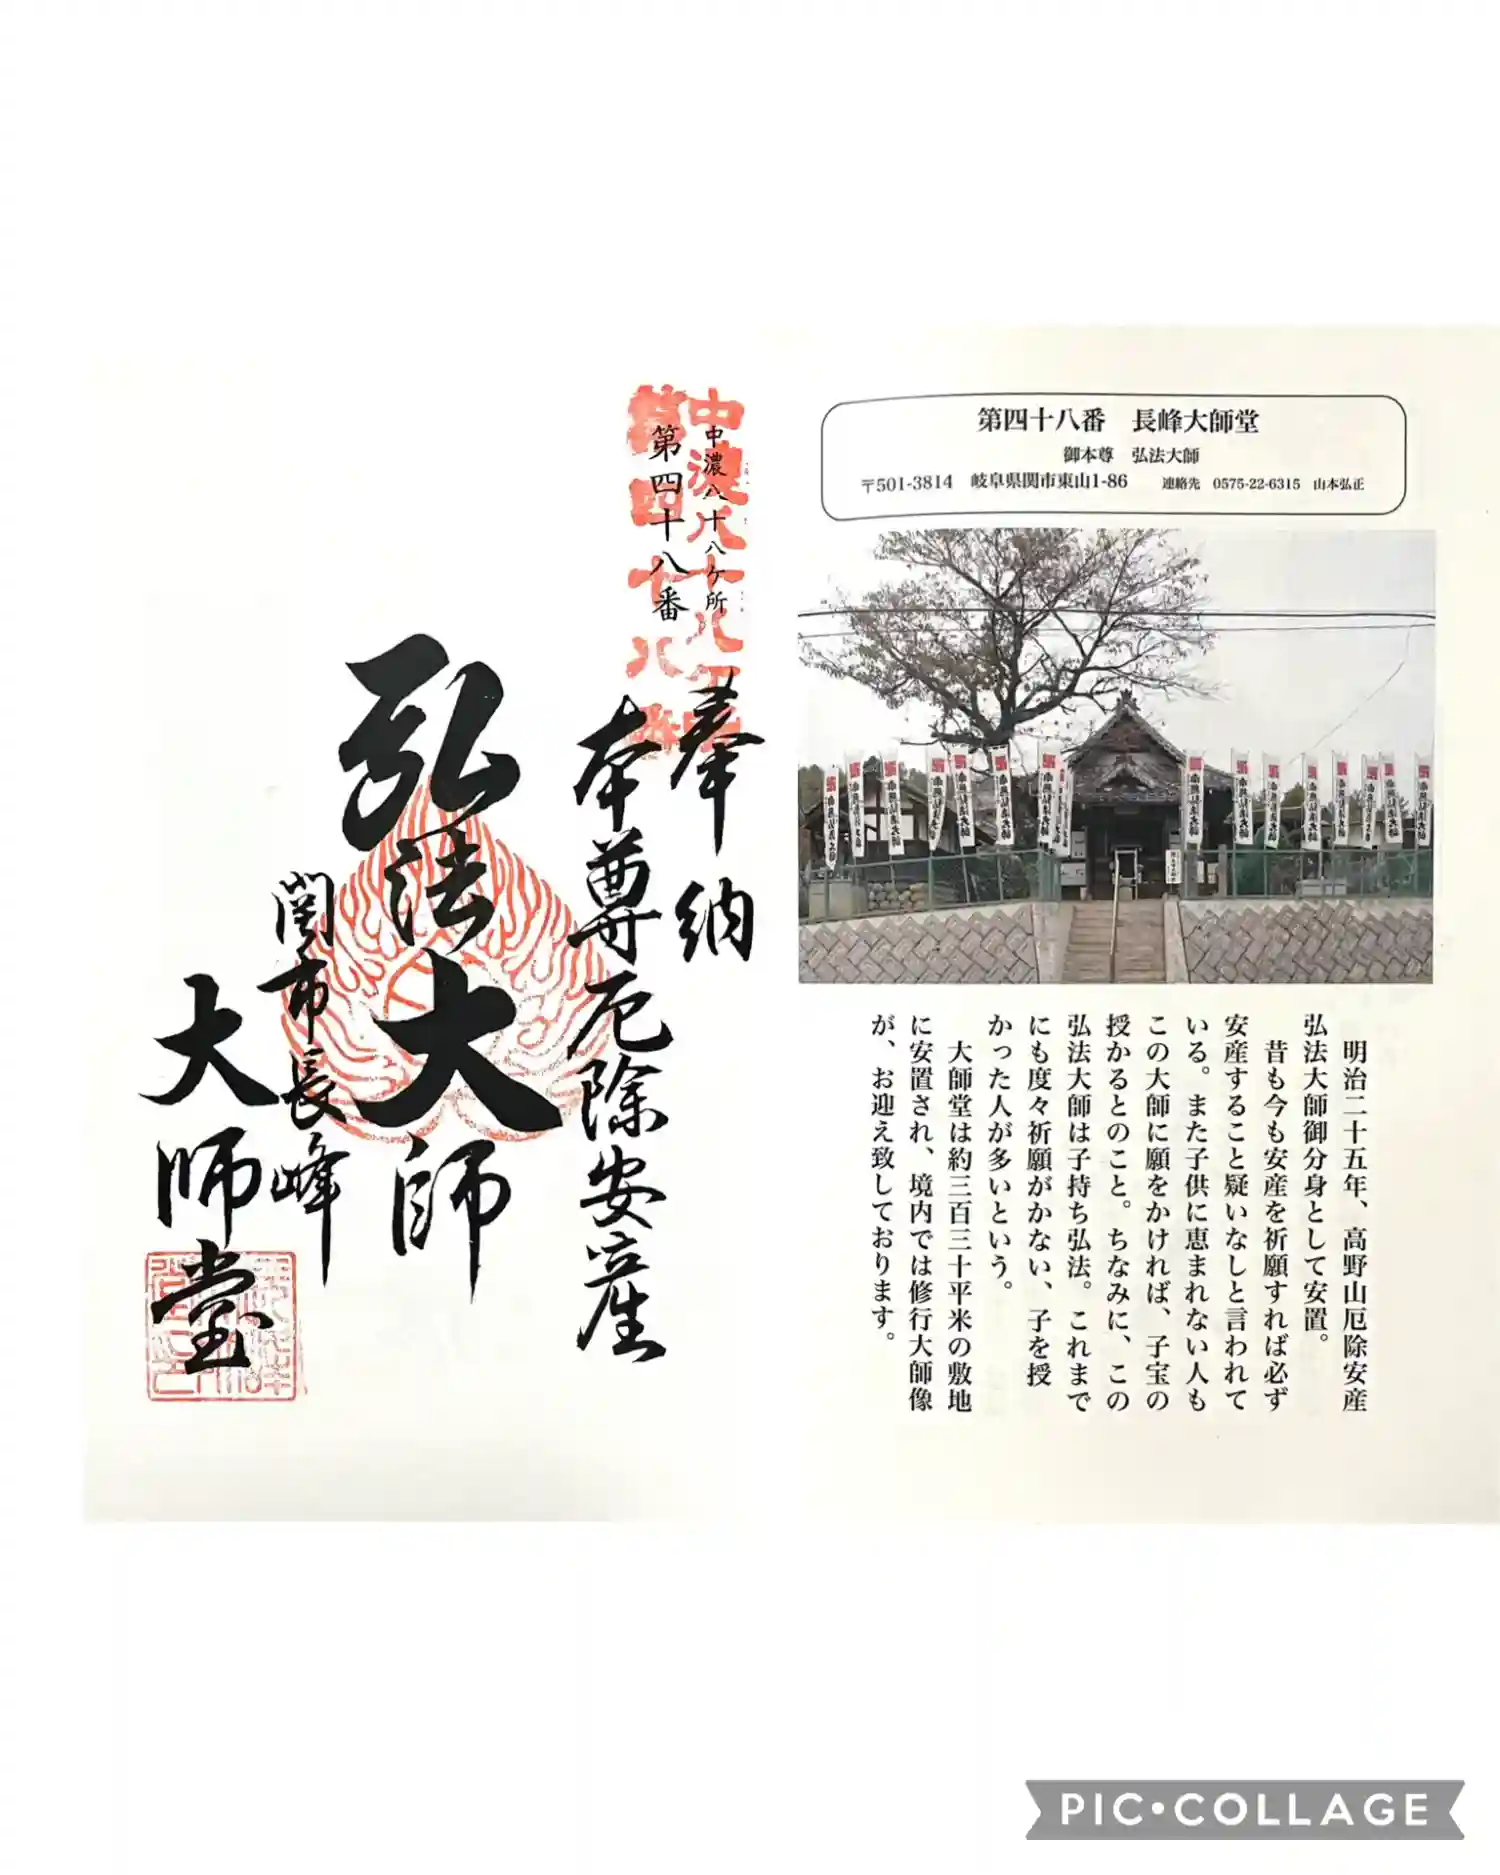 第四十八番　長峰大師堂
御本尊　弘法大師
〒501-3814　岐阜県関市東山1-86　連絡先　0575-22-6315　山本弘正
南無弘法大師
明治二十五年、高野山厄除安産
弘法大師御分身として安置。
昔も今も安産を祈願すれば必ず
安産すること疑いなしと言われて
いる。また子供に恵まれない人も
この大師に願をかければ、子宝の
授かるとのこと。ちなみに、この
弘法大師は子持ち弘法。これまで
にも度々祈願がかない、子を授
かった人が多いという。
大師堂は約三百三十平米の敷地
に安置され、境内では修行大師像
が、お迎え致しております。
中濃八十八ヶ所
第四十八番
中濃八十八ヶ所
第四十八番
奉納
本尊厄除安産
弘法大師
関市長峰
大師堂
PIC•COLLAGE